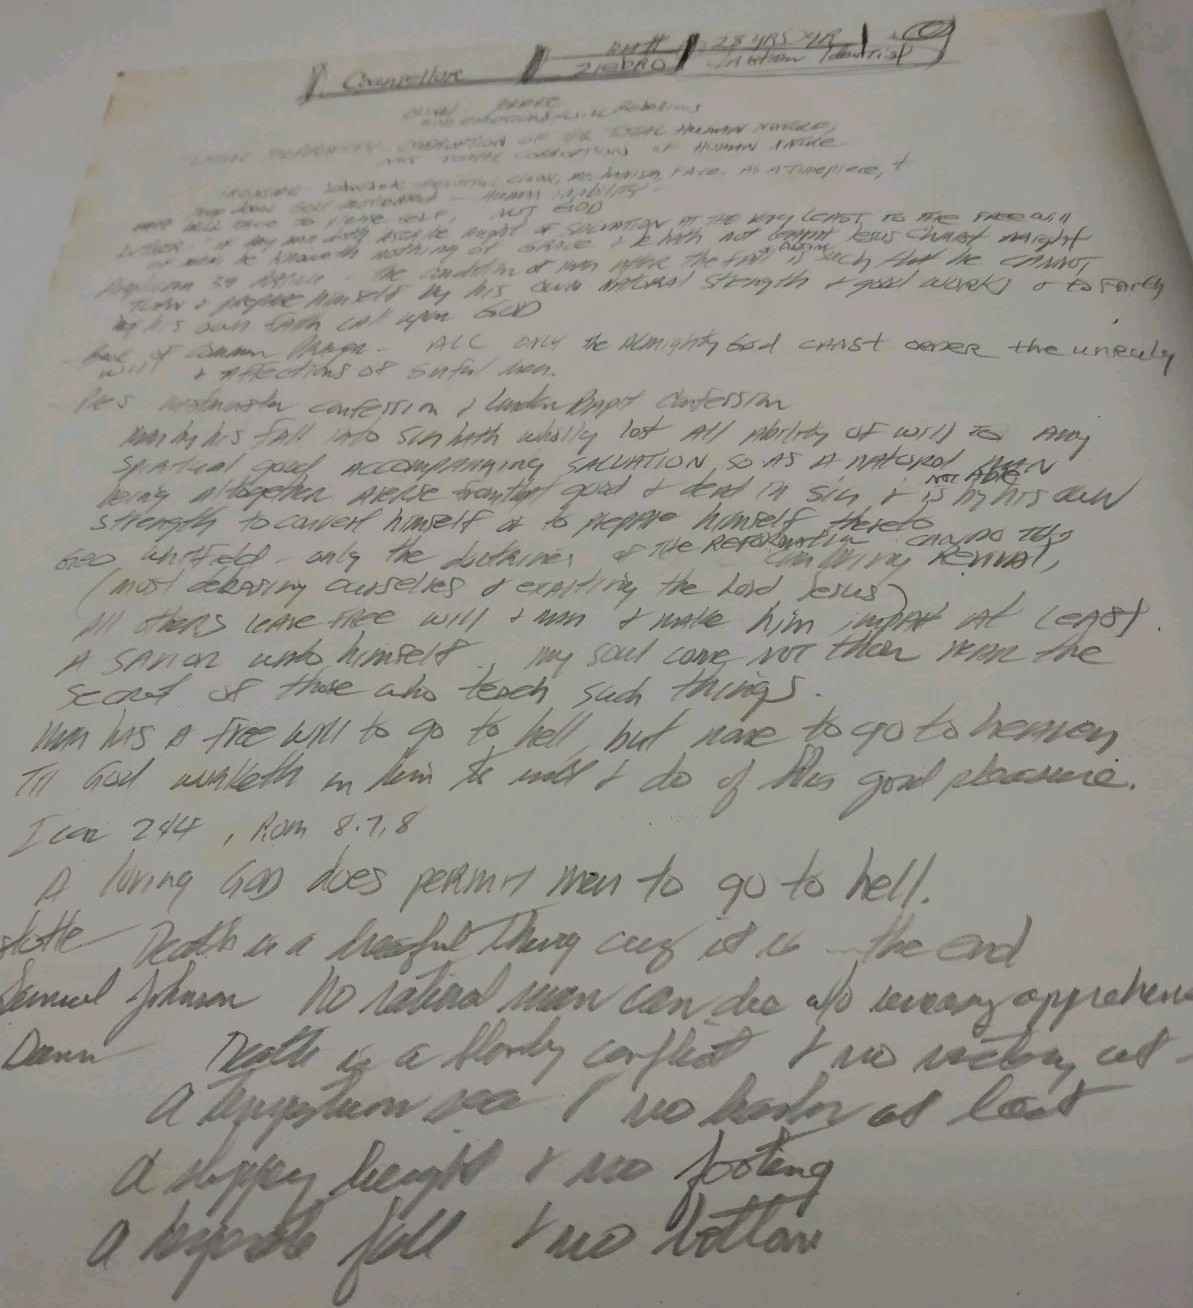 Counsellor 28 YRS
TOTAL DEPRAVITY CORRUPTION OF THE TOTAL HUMAN NATURE,
NOT TOTAL CORRUPTION OF HUMAN NATURE
clock, mechanism, FACE, AS A Timepiece, +
SELF-motivated - Human inability -
TO Please self, NOT GOD
Luther - if any man doth ascribe aught of SALVATION AT THE very LEAST TO THE FREE will
of man he knoweth nothing of GRACE & he hath not learnt Jesus Christ aright
39 Article The condition of man after the fall of ADAM is such that he CANNOT
TURN & prepare himself by his own NATURAL strength & good works
by his own faith call upon GOD
Book of Common Prayer - ALL only the Almighty God canst order the unruly
will & Affections of sinful men.
Pres Westminster confession & London Bapt Confession
Man by his fall into sin hath wholly lost All Ability of will TO Any
spiritual good ACCOMPANYING SALVATION, SO AS A NATURAL MAN
being altogether averse from that good & dead in sin & is NOT ABLE by his own
strength to convert himself or to prepare himself thereto
GEO Whitfield - only the doctrines of THE REFORMATION CAN DO THIS
REVIVAL,
(most debasing ourselves & exalting the Lord Jesus)
All others leave FREE will & man & make him in part AT LEAST
A SAVIOR unto himself, my soul come not thou near the
secret of those who teach such things.
Man has A FREE will to go to hell, but none to go to heaven
Til God worketh in him to will & do of His good pleasure.
I Cor 2:14, Rom 8:7,8
A loving GOD does permit men to go to hell.
Death is a dreadful thing cuz it is - the end
Samuel Johnson No rational man can die w/o uneasy apprehen
Death is a bloody conflict & no victory at
a tempestuous sea & no harbor at last
a slippery height & no footing
a desperate fall & no bottom